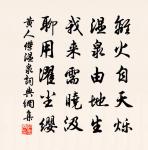 離火自天爍
溫泉由地生
我來需曉汲
聊用濯塵纓
黃人傑溫泉詞典網集